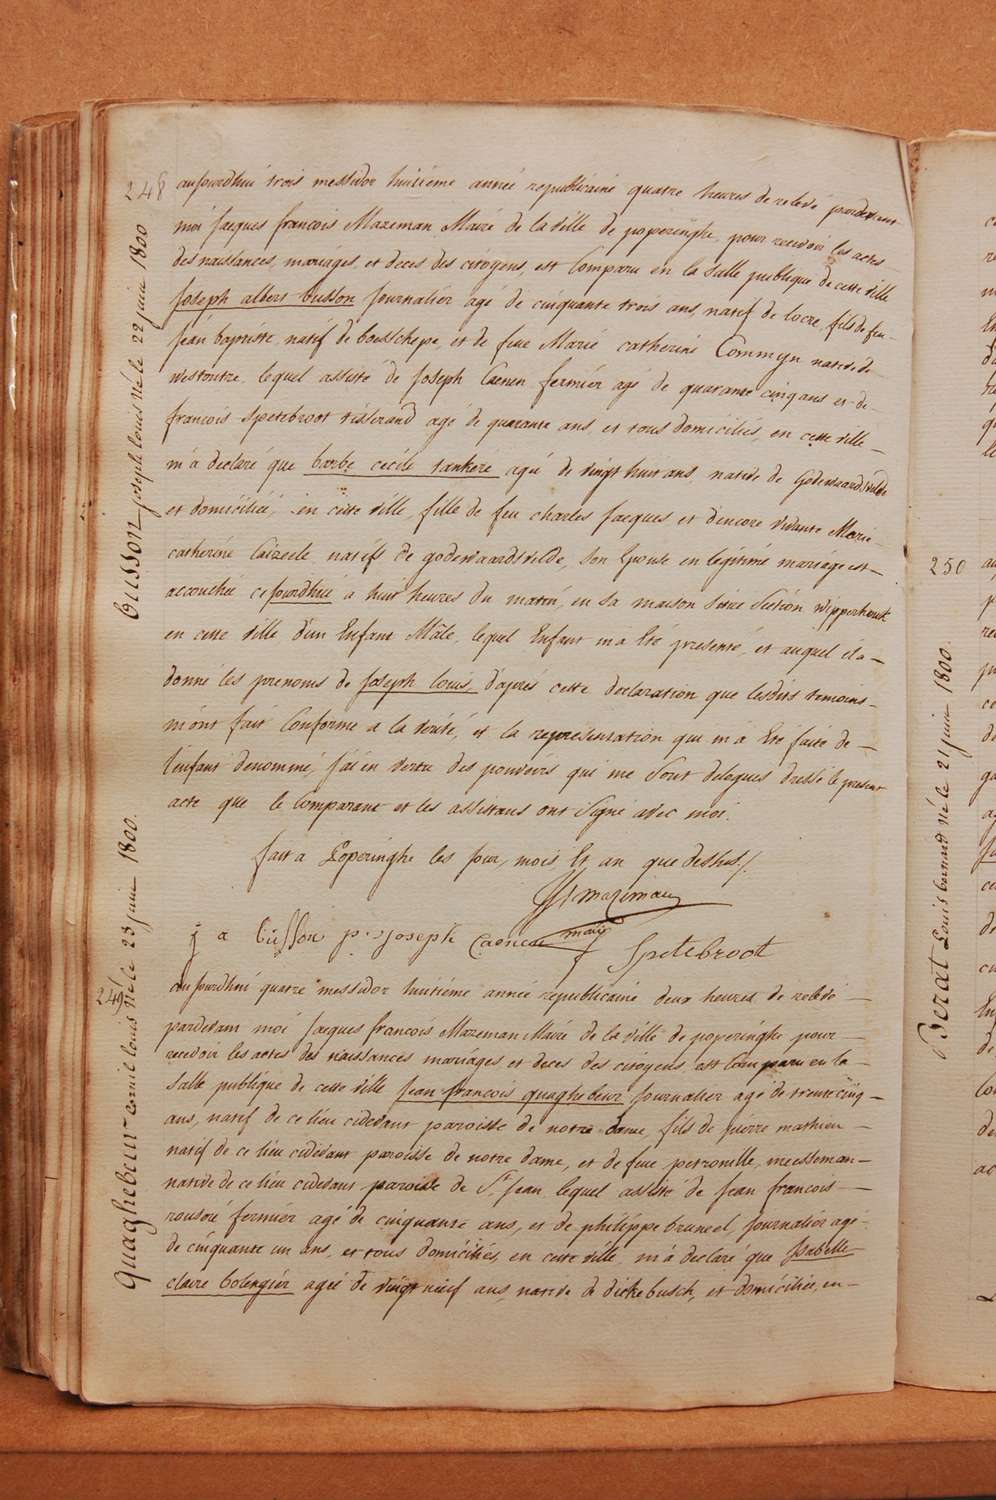 248
aujourdhui trois messidor huitieme année republicaine quatre heures de relevé pardevant
moi jacques francois Mazeman Maire de la ville de poperinghe, pour recevoir les actes
des naissances, mariages, et deces des citoyens, est Comparu en la salle publique de cette ville
Joseph albert busson journalier agé de cinquante trois ans, natif de locre, fils de feu
jean baptiste, natif de boesschepe, et de feue Marie catherine Commyn native de
westoutre, lequel assisté de joseph Caenen fermier agé de quarante cinq ans et de
francois spetebroot tisserand agé de quarante ans, et tous domiciliés, en cette ville
m'a declaré que barbe cecile tankere agée de vingt huit ans, native de Godewaardsvelde
et domiciliée, en cette ville, fille de feu charles jacques et d'encore vivante Marie
catherine Caizeele natifs de godewaardsvelde, son Epouse en legitime mariage est
accouchée ce jourdhui à huit heures du matin, en sa maison sise section wipperhouck
en cette ville d'un Enfant Mâle, lequel Enfant m'a Eté presenté, et auquel il a
donné les prenoms de Joseph louis, d'aprés cette declaration que lesdits temoins
m'ont fait Conforme a la verité, et la representation qui m'a Eté faite de
l'enfant denommé, j'ai en vertu des pouvoirs qui me sont delegués dressé le present
acte que le Comparant et les assistans ont signé avec moi.
fait a Poperinghe les jour, mois Et an que dessus./.
J f mazeman
maire
j a busson p. joseph Caenen Spetebroot
Busson joseph louis né le 22 juin 1800
249
aujourdhui quatre messidor huitiéme année republicaine deux heures de relevé
pardevant moi jacques francois Mazeman Maire de la ville de poperinghe pour
recevoir les actes des naissances mariages et deces des citoyens est Comparu en la
salle publique de cette ville jean francois quaghebeur journalier agé de trente cinq
ans, natif de ce lieu cidevant paroisse de notre dame, fils de pierre mathieu
natif de ce lieu cidevant paroisse de notre dame, et de feue petronille, meesseman
native de ce lieu cidevant paroisse de St. jean, lequel assisté de jean francois
rouseré fermier agé de cinquante ans, et de philippe bruneel, journalier agé
de cinquante un ans, et tous domiciliés, en cette ville m'a declaré que Isabelle
claire bolengiér agée de vingt neuf ans, native de dickebusch, et domiciliée, en
quaghebeur emil louis né le 23 juin 1800.
250
Berat Louis bernard né le 21 juin 1800.